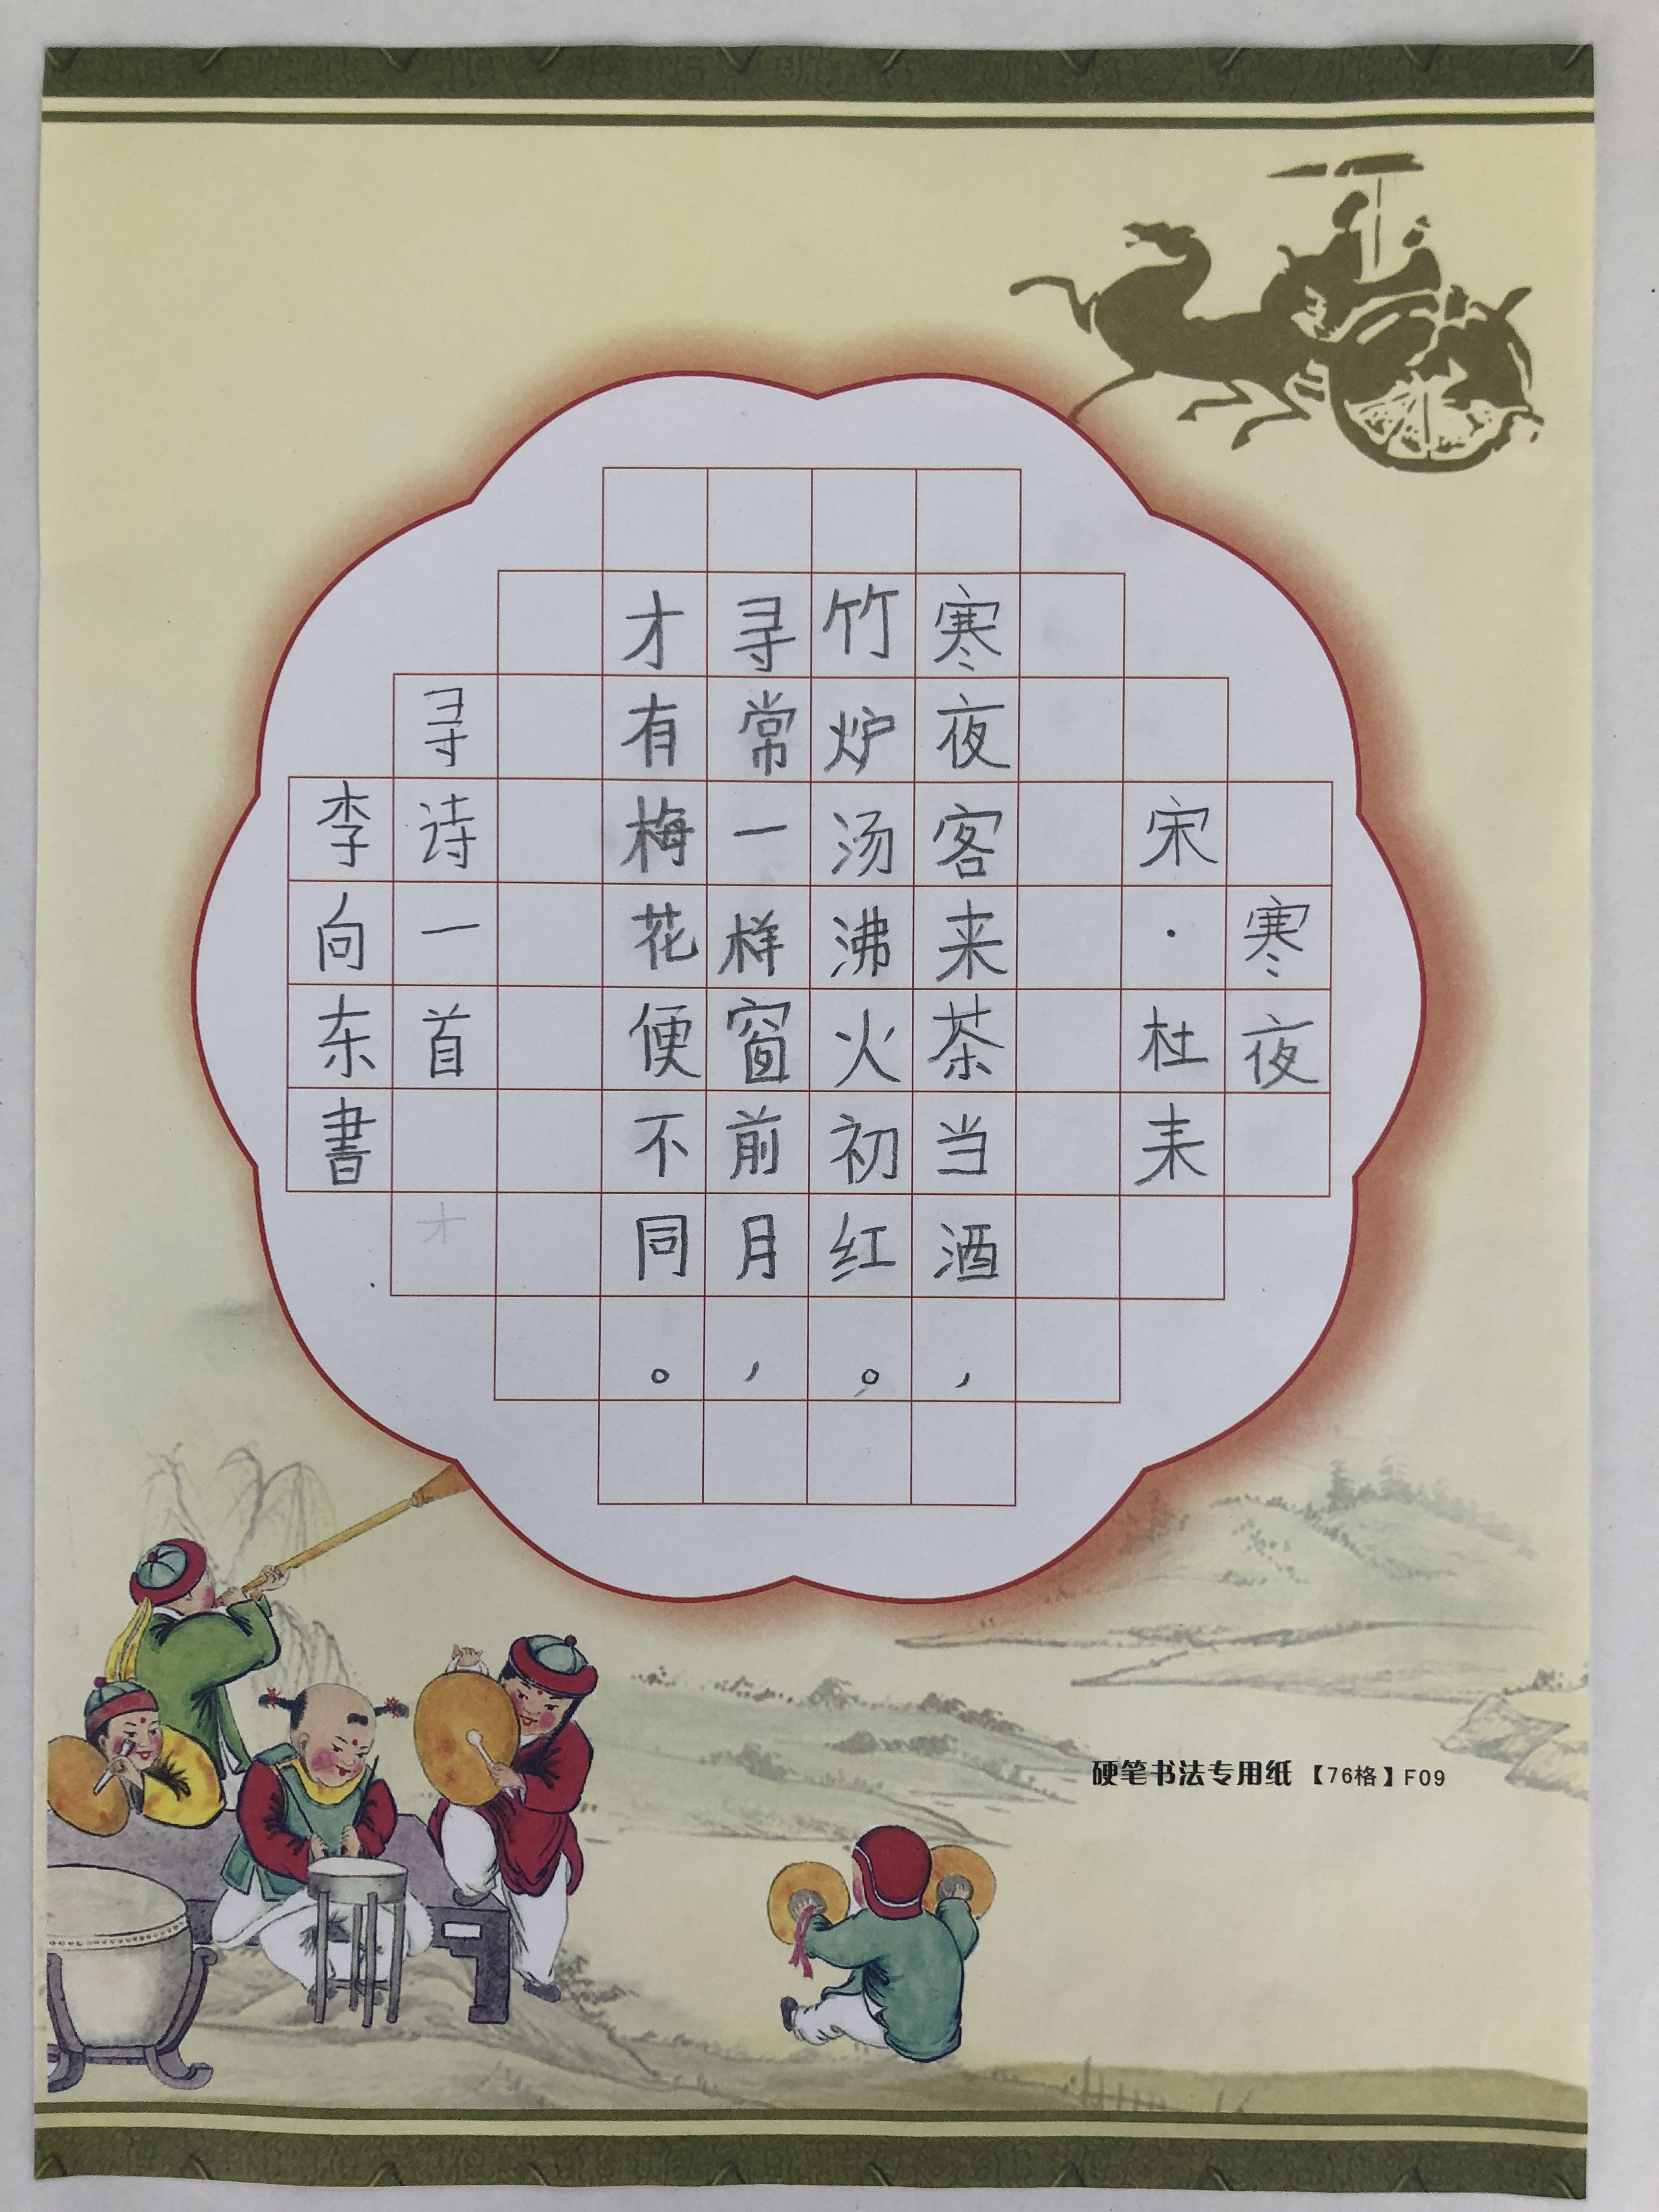 寒夜
宋·杜耒
寒夜客来茶当酒，
竹炉汤沸火初红。
寻常一样窗前月，
才有梅花便不同。
寻诗一首
李向东書
硬笔书法专用纸【76格】F09